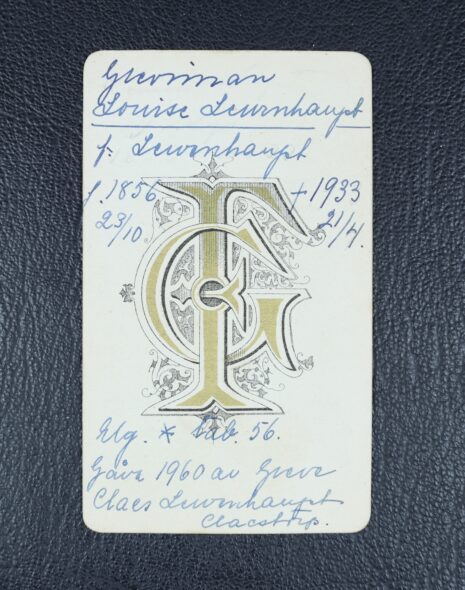 Grevinnan
Louise Lewenhaupt
f. Lewenhaupt
f. 1856 † 1933
23/10 21/4.
GF
Elg. * Tab. 56.
Gåva 1960 av Greve
Claes Lewenhaupt
Claestorp.